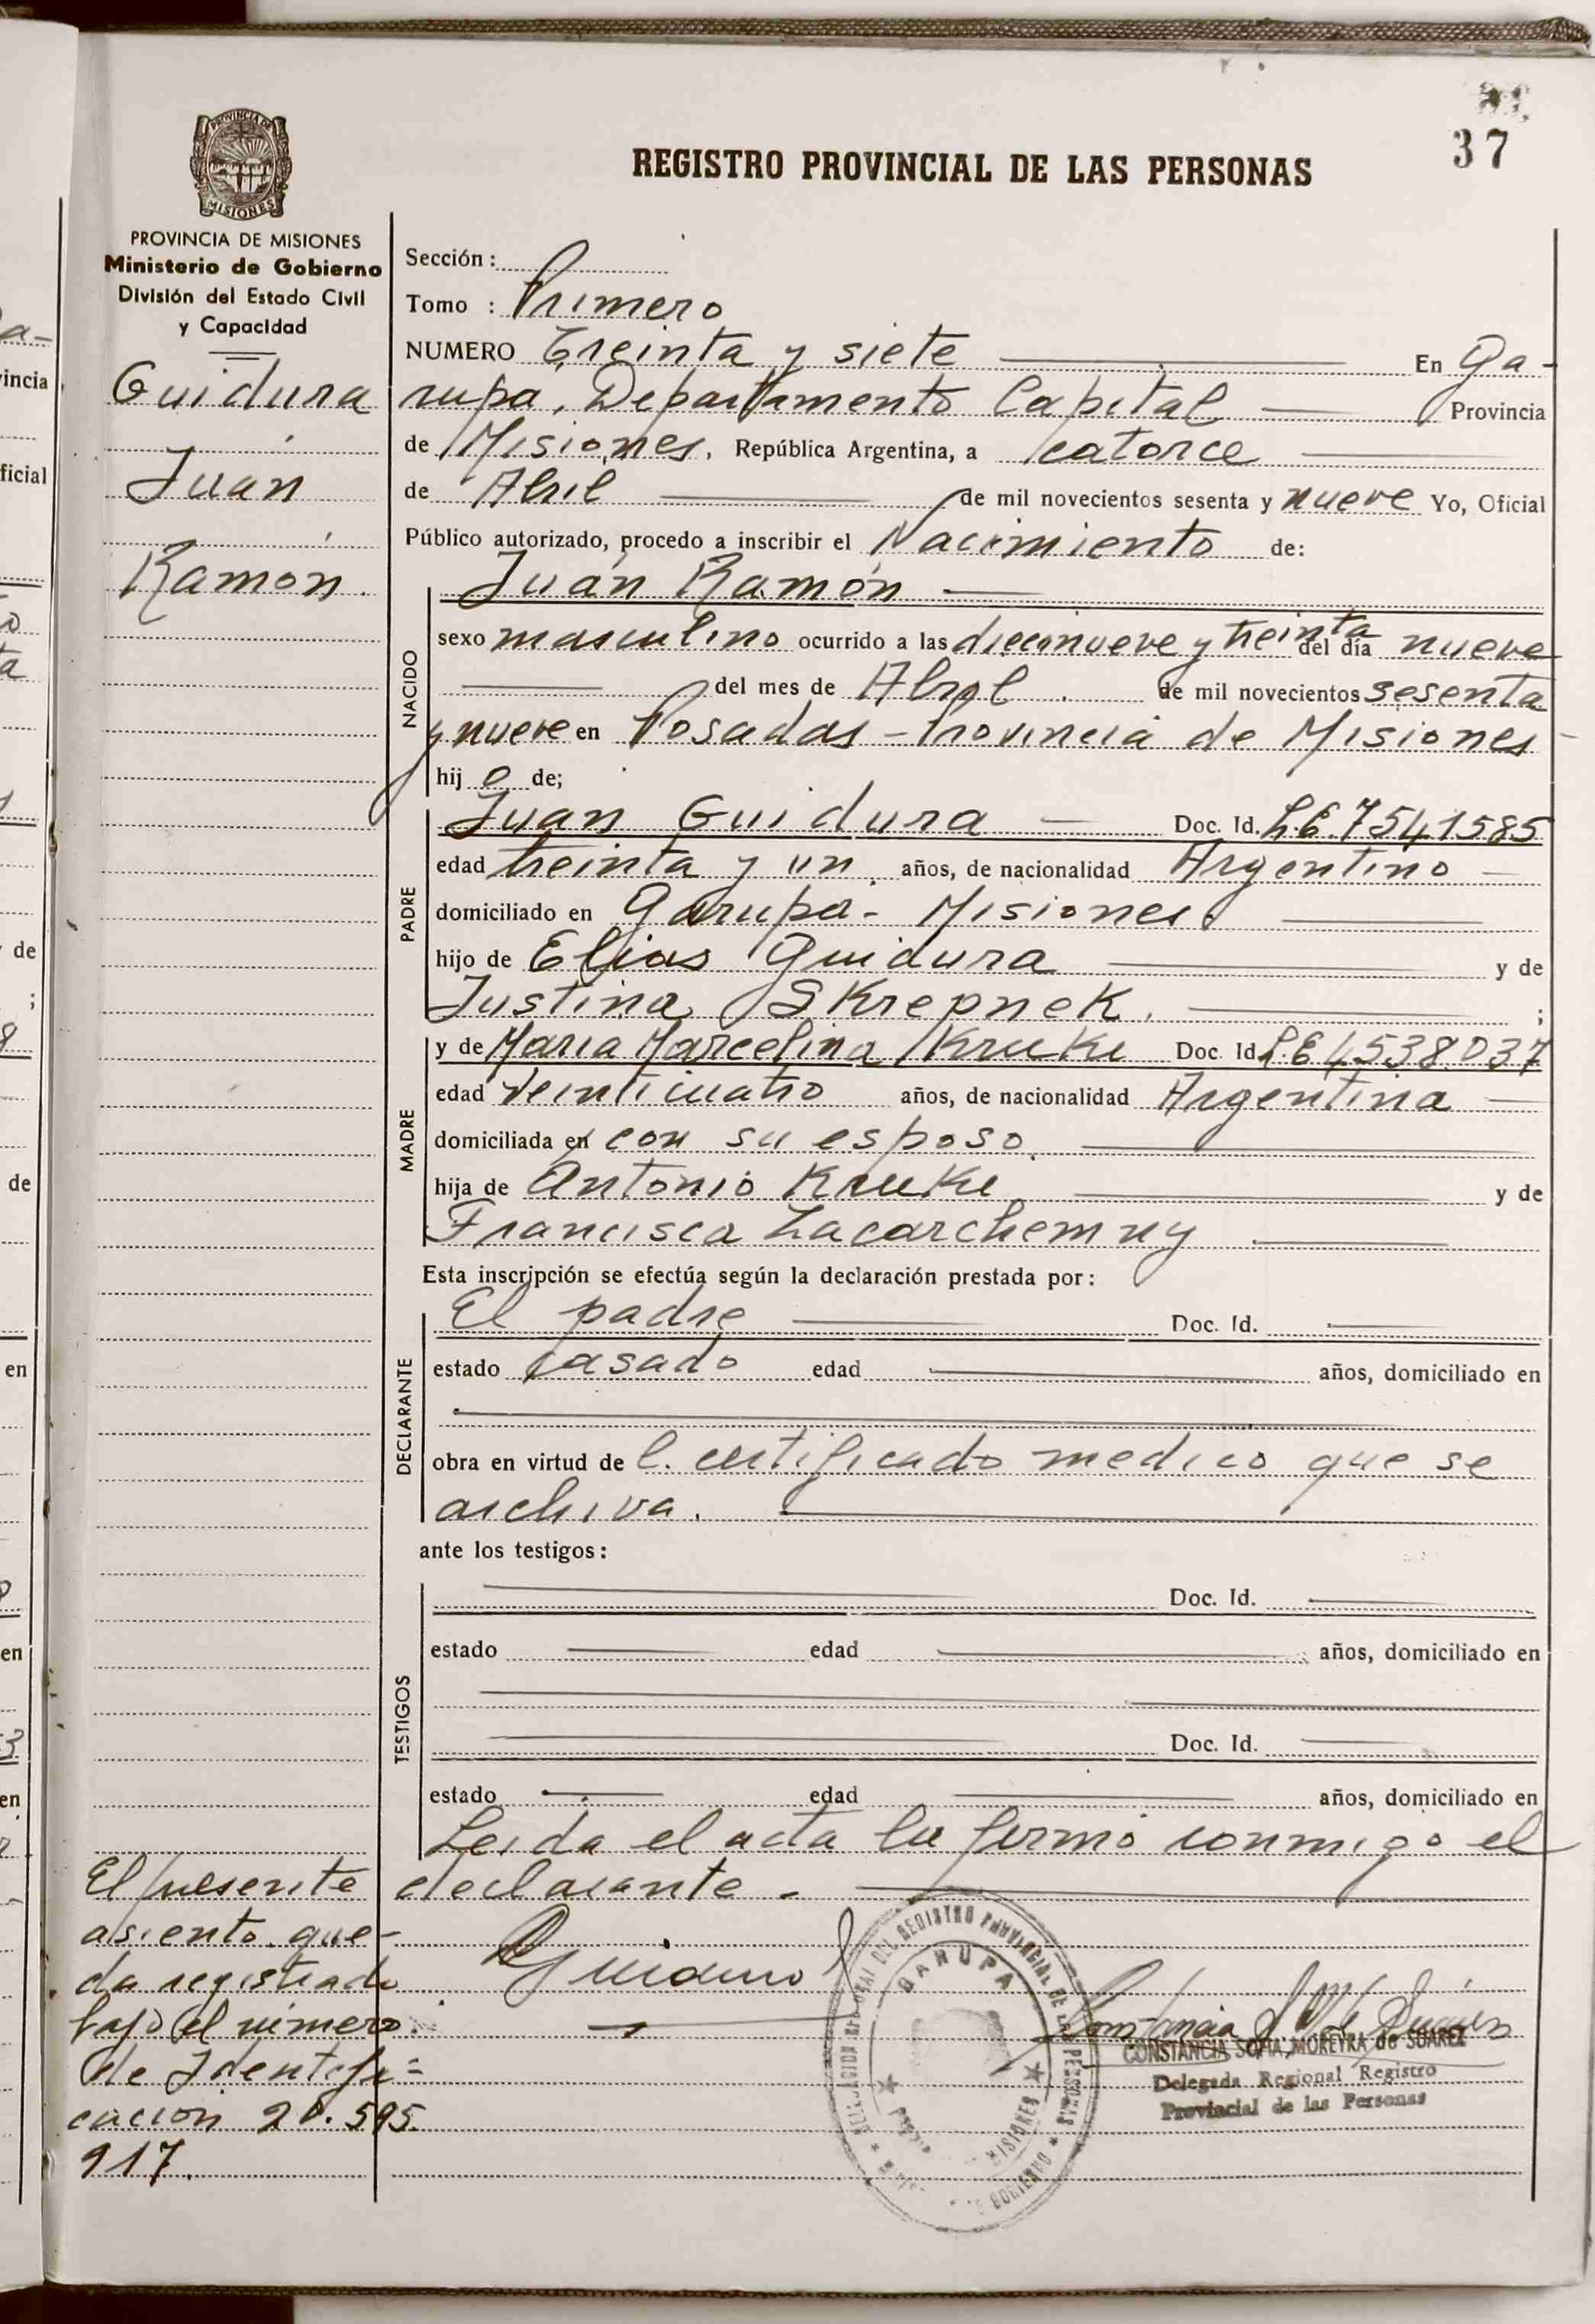 37
REGISTRO PROVINCIAL DE LAS PERSONAS
PROVINCIA DE
MISIONES
PROVINCIA DE MISIONES
Ministerio de Gobierno
División del Estado Civil
y Capacidad
Guidura
Juan
Ramón.
Sección:
Tomo : Primero
NUMERO Treinta y siete En Ga-
rupa, Departamento Capital Provincia
de Misiones, República Argentina, a catorce
de Abril de mil novecientos sesenta y nueve Yo, Oficial
Público autorizado, procedo a inscribir el Nacimiento de:
NACIDO
Juan Ramón —
sexo masculino ocurrido a las diecinueve y treinta del día nueve
del mes de Abril de mil novecientos sesenta
y nueve en Posadas - Provincia de Misiones -
hij o de;
PADRE
Juan Guidura — Doc. Id. L.E. 7541585
edad treinta y un años, de nacionalidad Argentino —
domiciliado en Garupa - Misiones.
hijo de Elias Guidura y de
Justina Skrepnek. ;
MADRE
y de Maria Marcelina Kruki Doc. Id. L.E 4538.037
edad veinticuatro años, de nacionalidad Argentina —
domiciliada en con su esposo.
hija de Antonio Kruki y de
Francisca Lacarchemny
Esta inscripción se efectúa según la declaración prestada por:
DECLARANTE
El padre Doc. Id.
estado casado edad años, domiciliado en
obra en virtud de l. certificado medico que se
archiva.
ante los testigos:
TESTIGOS
Doc. Id.
estado edad años, domiciliado en
Doc. Id.
estado edad años, domiciliado en
Leida el acta la firmó conmigo el
declarante.
El presente
asiento que-
da registrado
bajo el número
de Identifi=
cación 20.595.
917.
GARUPA
MISIONES
CONSTANCIA SOFIA MOREYRA de SUAREZ
Delegada Regional Registro
Provincial de las Personas